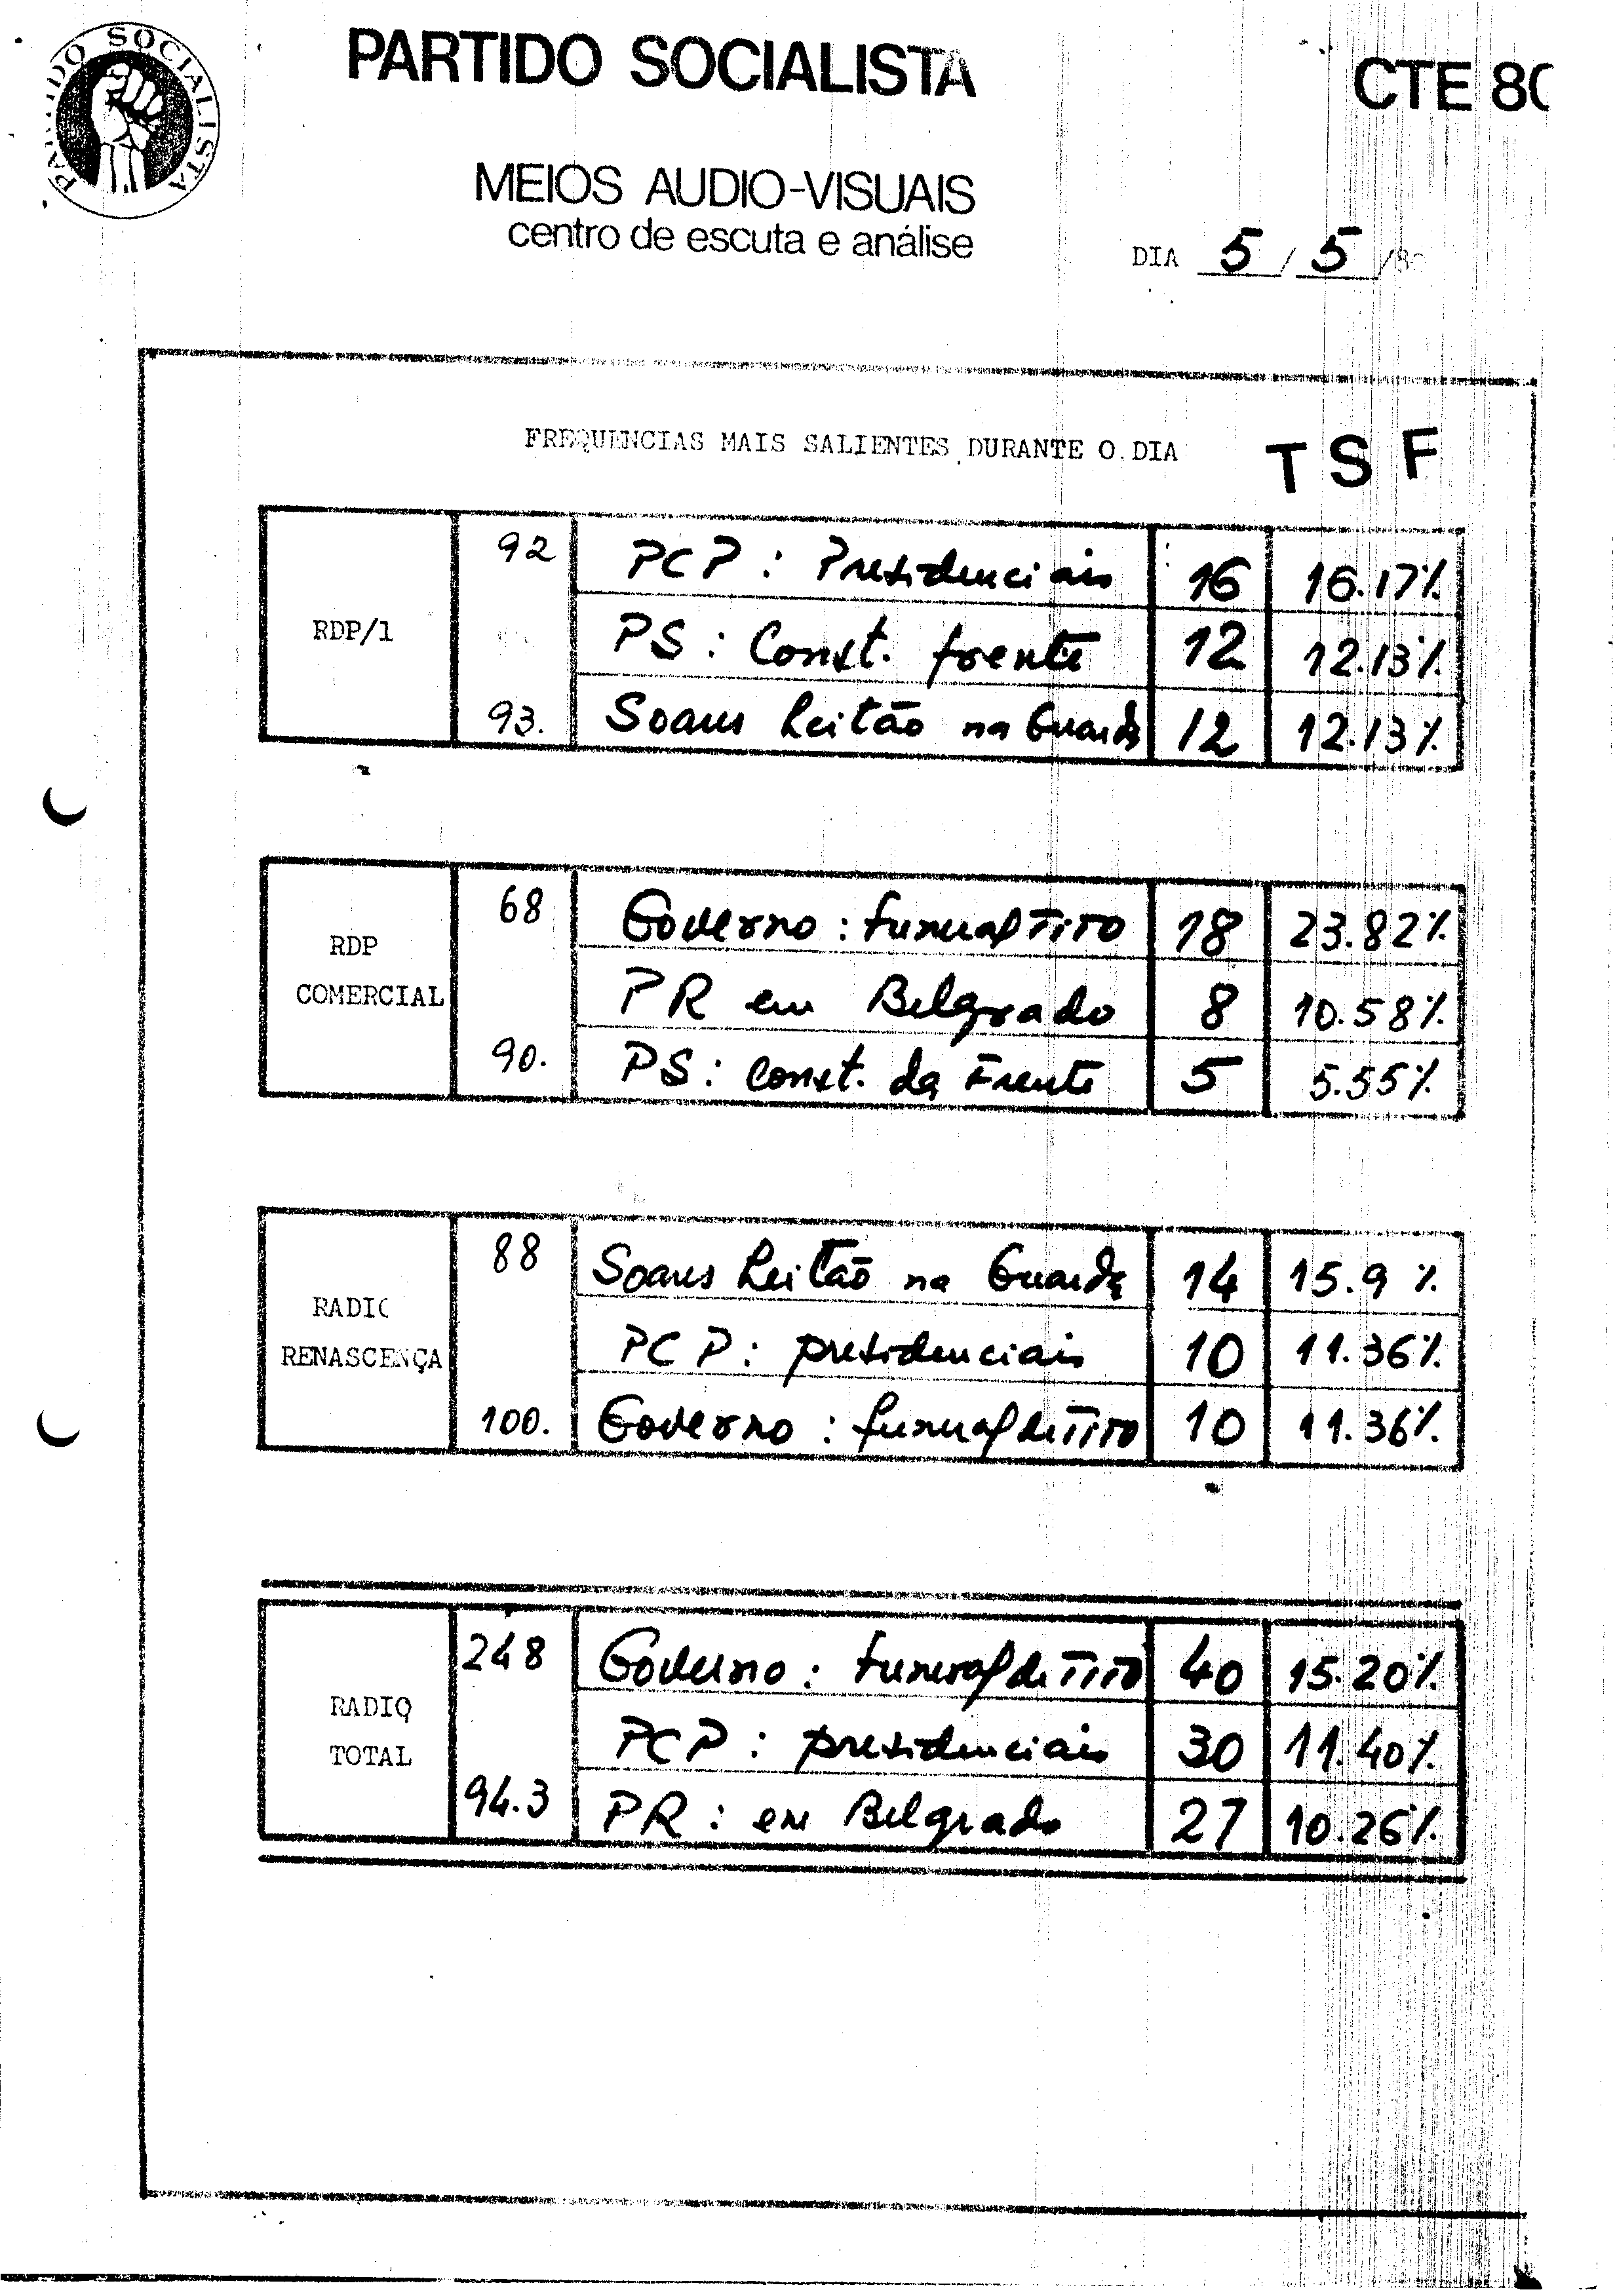 PARTIDO SOCIALISTA
PARTIDO SOCIALISTA
CTE 80
MEIOS AUDIO-VISUAIS
centro de escuta e análise
DIA 5 / 5 /80
FREQUENCIAS MAIS SALIENTES DURANTE O DIA T S F
92 PCP : Presidenciais 16 16.17%
RDP/1 PS : Const. frente 12 12.13%
93. Soares Leitão na Guarda 12 12.13%
68 Governo : funeral TITO 18 23.82%
RDP
COMERCIAL PR em Belgrado 8 10.58%
90. PS : Const. da Frente 5 5.55%
88 Soares Leitão na Guarda 14 15.9 %
RADIO
RENASCENÇA PCP : presidenciais 10 11.36%
100. Governo : funeral de TITO 10 11.36%
248 Governo : funeral de TITO 40 15.20%
RADIO
TOTAL PCP : presidenciais 30 11.40%
94.3 PR : em Belgrado 27 10.26%